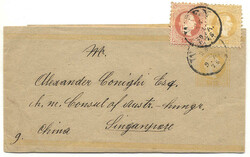 Mr.
Alexander Conighi Esq.
h. m. Consul of Austr.-hungr.
Singapore
g. China